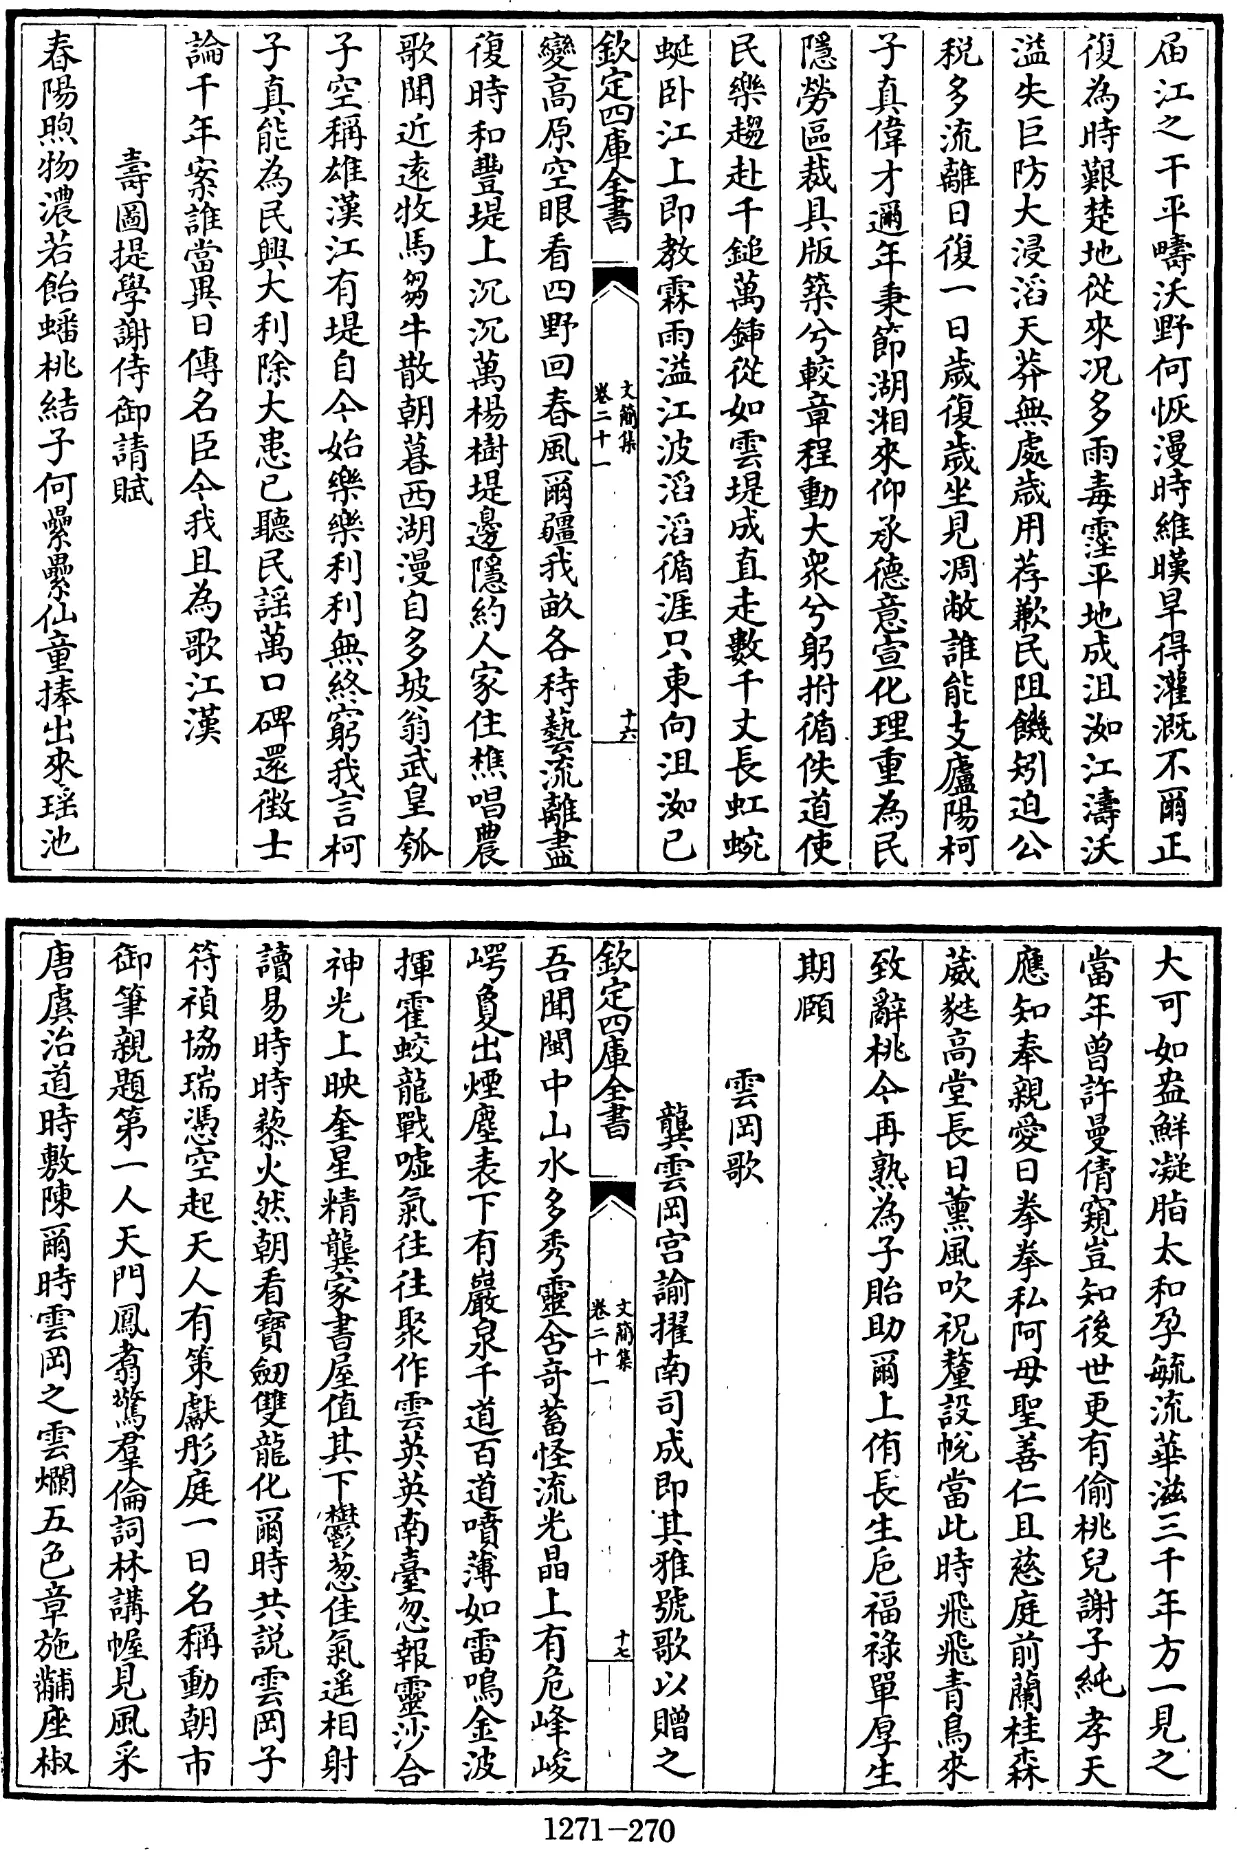 届江之干平疇沃野何恢漫時維暵旱得灌溉不爾正
復為時艱楚地從來况多雨毒霪平地成沮洳江濤沃
溢失巨防大浸滔天莽無處歳用荐歉民阻饑矧迫公
税多流離日復一日歳復歳坐見凋敝誰能支廬陽柯
子真偉才邇年秉節湖湘來仰承德意宣化理重為民
隱勞區裁具版築兮較章程動大衆兮躬拊循佚道使
民樂趨赴千鎚萬鍤從如雲堤成直走數千丈長虹蜿
蜒卧江上即教霖雨溢江波滔滔循涯只東向沮洳已
欽定四庫全書
文簡集
卷二十一
十六
變高原空眼看四野回春風爾疆我畝各待藝流離盡
復時和豐堤上沉沉萬楊樹堤邊隱約人家住樵唱農
歌聞近遠牧馬芻牛散朝暮西湖漫自多坡翁武皇瓠
子空稱雄漢江有堤自今始樂樂利利無終窮我言柯
子真能為民興大利除大患已聽民謡萬口碑還徴士
論千年案誰當異日傳名臣今我且為歌江漢
壽圖提學謝侍御請賦
春陽煦物濃若飴蟠桃結子何纍纍仙童捧出來瑶池
大可如盎鮮凝脂太和孕毓流華滋三千年方一見之
當年曾許曼倩窺豈知後世更有偷桃兒謝子純孝天
應知奉親愛日拳拳私阿母聖善仁且慈庭前蘭桂森
葳甤高堂長日薰風吹祝釐設帨當此時飛飛青鳥來
致辭桃今再熟為子貽助爾上侑長生巵福祿單厚生
期頤
雲岡歌
龔雲岡宫諭擢南司成即其雅號歌以贈之
欽定四庫全書
文簡集
卷二十一
十七
吾聞閩中山水多秀靈含竒蓄怪流光晶上有危峰峻
崿敻出煙塵表下有巖泉千道百道噴薄如雷鳴金波
揮霍蛟龍戰噓氣往往聚作雲英英南臺忽報靈沙合
神光上映奎星精龔家書屋值其下鬱葱佳氣遥相射
讀易時時藜火然朝看寶劒雙龍化爾時共説雲岡子
符禎協瑞憑空起天人有策獻彤庭一日名稱動朝市
御筆親題第一人天門鳳翥驚羣倫詞林講幄見風采
唐虞治道時敷陳爾時雲岡之雲爛五色章施黼座椒
1271-270